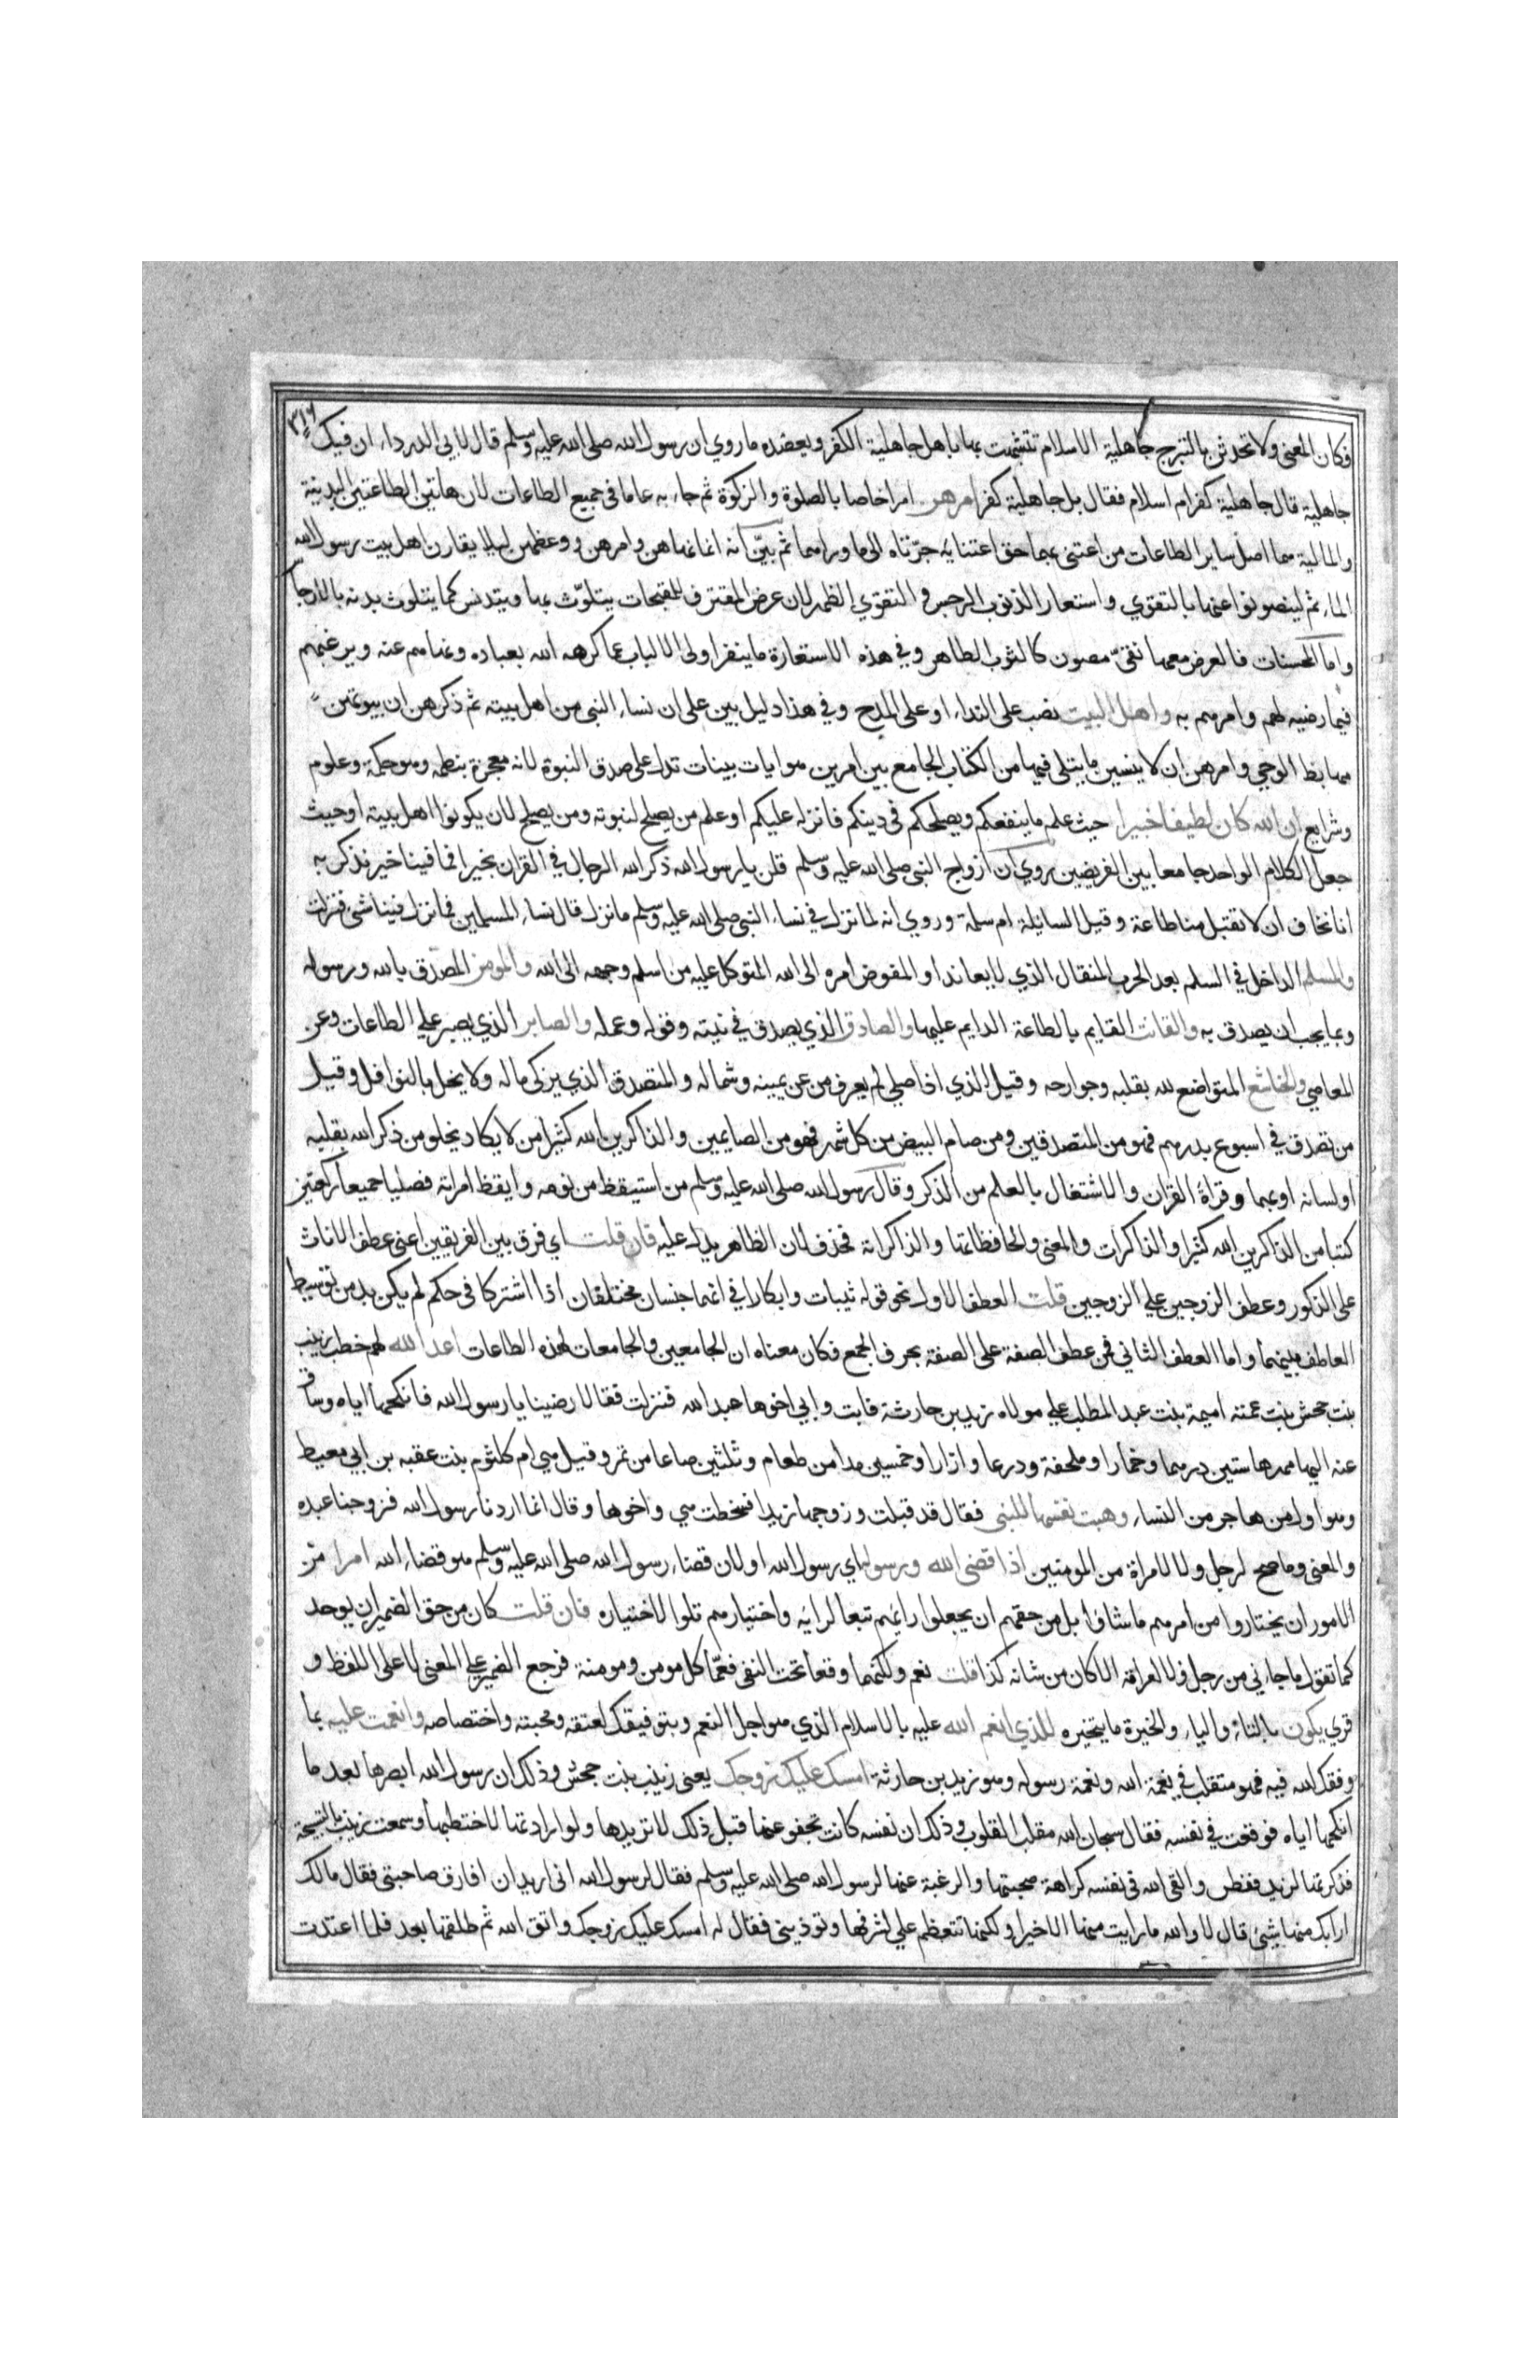 ٣١٦
فكان المعنى ولا تحدثن بالتبرج جاهلية الاسلام تتشبهت بها باهل جاهلية الكفر ويعضده ما روي ان رسول الله صلى الله عليه وسلم قال لابي الدرداء ان فيك
جاهلية قال جاهلية كفر ام اسلام فقال بل جاهلية كفر امرهن امرا خاصا بالصلوة والزكوة ثم جاء به عاما في جميع الطاعات لان هاتين الطاعتين البدنية
والمالية هما اصل ساير الطاعات من اعتنى بهما حق اعتنائه جرّتاه الى ما وراهما ثم بيّن انه انما نهاهن وامرهن ووعظهن ليلا يقارن اهل بيت رسول الله
الماثم ليتصونوا عنها بالتقوي واستعار الذنوب الرجس و التقوي الطهر لان عرض المقترف للمقبحات يتلوّث بها ويتدنس كما يتلوث بدنه بالارجاس
واما المحسنات فالعرض معها نقيّ مصون كالثوب الطاهر وفي هذه الاستعارة ما ينفر اولى الالباب عما كرهه الله بعباده ونهاهم عنه ويرغبهم
فيما رضيه لهم وامرهم به واهل البيت نصب على النداء او على المدح وفي هذا دليل بين على ان نساء النبي من اهل بيته ثم ذكرهن ان بيوتهن
مهابط الوحي وامرهن ان لا ينسين ما يتلى فيها من الكتاب الجامع بين امرين هو ايات بينات تدل على صدق النبوة لانه معجزة بنظمه وهو حكمة وعلوم
وشرايع ان الله كان لطيفا خبيرا حيث علم ما ينفعكم ويصلحكم في دينكم فانزله عليكم او علم من يصلح لنبوته ومن يصلح لان يكونوا اهل بيته او حيث
جعل الكلام الواحد جامعا بين الغرضين روي ان ازواج النبي صلى الله عليه وسلم قلن يا رسول الله ذكر الله الرجال في القران بخير افما فينا خير نذكر به
انا نخاف ان لا تقبل منا طاعة وقيل السايلة ام سلمة وروي انه لما نزل في نساء النبي صلى الله عليه وسلم ما نزل قال نساء المسلمين فما نزل فينا شى فنزلت
والمسلم الداخل في السلم بعد الحرب المنقاد الذي لا يعاند او المفوض امره الى الله المتوكل عليه من اسلم وجهه الى الله والمومن المصدّق بالله ورسوله
وبما يجب ان يصدق به والقانت القايم بالطاعة الدايم عليها والصادق الذي يصدق في نيته وقوله وعمله والصابر الذي يصبر علي الطاعات وعن
المعاصي والخاشع المتواضع لله بقلبه وجوارحه وقيل الذي اذا صلي لم يعرف من عن يمينه وشماله والمتصدق الذي يزكى ماله ولا يخل بالنوافل وقيل
من تصدق في اسبوع بدرهم فهو من المتصدقين ومن صام البيض من كل شهر فهو من الصايمين والذاكرين الله كثيرا من لا يكاد يخلو من ذكر الله بقلبه
او لسانه او بهما وقراة القران والاشتغال بالعلم من الذكر وقال رسول الله صلى الله عليه وسلم من استيقظ من نومه وايقظ امراته فصليا جميعا ركعتين
كتبا من الذاكرين الله كثيرا والذاكرات والمعنى والحافظاتها والذاكراته فحذف لان الظاهر يدل عليه فان قلت اي فرق بين الفريقين اعنى عطف الاناث
على الذكور وعطف الزوجين علي الزوجين قلت العطف الاول نحو قوله ثيبات وابكارا في انهما جنسان مختلفان اذا اشتركا فى حكم لم يكن بد من توسيط
العاطف بينهما واما العطف الثاني فمن عطف الصفة على الصفة بحرف الجمع فكان معناه ان الجامعين والجامعات لهذه الطاعات اعد الله لهم خطب زينب
بنت جحش بنت عمته اميمة بنت عبد المطلب علي مولاه زيد بن حارثة فابت وابي اخوها عبد الله فنزلت فقالا رضينا يا رسول الله فانكحها اياه وساق
عنه اليها مهرها ستين درهما وخمارا وملحفة ودرعا وازارا وخمسين مدا من طعام وثلثين صاعا من تمر وقيل هي ام كلثوم بنت عقبه بن ابي معيط
وهو اول من هاجر من النساء وهبت نفسها للنبى فقال قد قبلت وزوجها زيدا فسخطت هي واخوها وقال انما اردنا رسول الله فزوجنا عبده
والمعنى وما صح لرجل ولا لامراة من المومنين اذا قضى الله ورسوله اي رسول الله او لان قضاء رسول الله صلى الله عليه وسلم هو قضاء الله امرا من
الامور ان يختاروا من امرهم ما شاؤا بل من حقهم ان يجعلوا رايهم تبعا لرايه واختيارهم تلوا لاختياره فان قلت كان من حق الضمير ان يوحد
كما تقول ما جاءني من رجل ولا امراة الا كان من شانه كذا قلت نعم ولكنهما وقعا تحت النفى فعمّا كل مومن ومومنة فرجع الضمير علي المعنى لا على اللفظ و
قري يكون بالتاء والياء والخيرة ما يتخيره للذي انعم الله عليه بالاسلام الذي هو اجل النعم وبتوفيقك لعتقه ومحبته واختصاصه وانعمت عليه بما
وفقك الله فيه فهو متقلب في نعمة الله ونعمة رسوله وهو زيد بن حارثة امسك عليك زوجك يعنى زينب بنت جحش وذلك ان رسول الله ابصرها بعد ما
انكحها اياه فوقعت في نفسه فقال سبحان الله مقلب القلوب وذلك ان نفسه كانت تجفو عنها قبل ذلك لا تريدها ولو ارادتها لاختطبها وسمعت زينب بالتسبيحة
فذكرتها لزيد ففطن والقى الله في نفسه كراهة صحبتها والرغبة عنها لرسول الله صلى الله عليه وسلم فقال لرسول الله انى اريد ان افارق صاحبتى فقال مالك
ارابك منها شيئ قال لا والله ما رايت منها الا خيرا ولكنها تتعظم علي لشرفها وتوذينى فقال له امسك عليك زوجك واتق الله ثم طلقها بعد فلما اعتدت